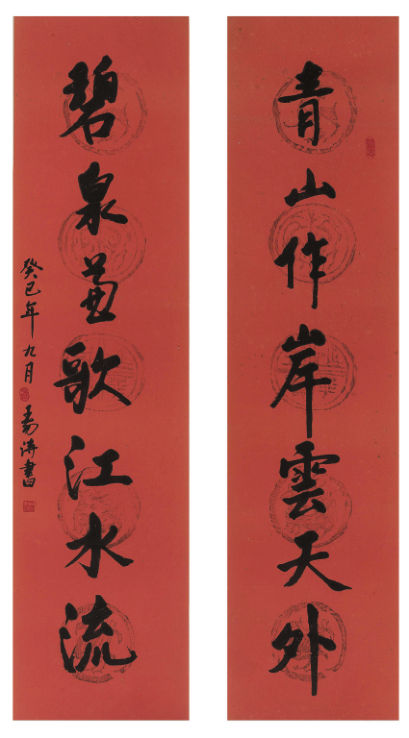 青山作岸雲天外
碧泉歌江水流
癸巳年九月書